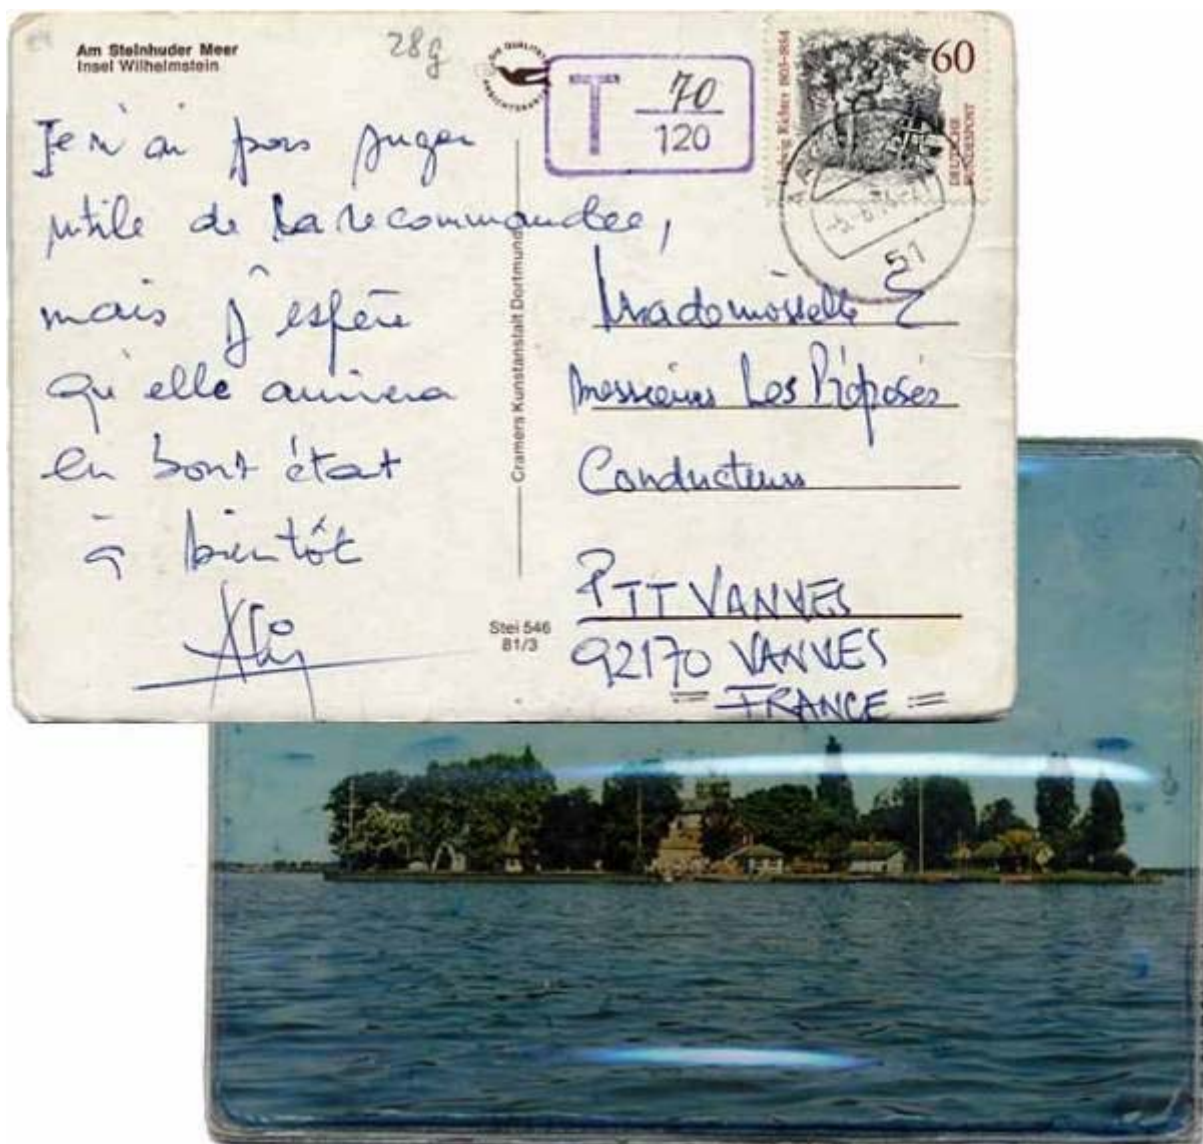 Am Steinhuder Meer
Insel Wilhelmstein
28g
DIE QUALITÄTS
ANSICHTSKARTE
T 70
120
Ludwig Richter 1803-1884
60
DEUTSCHE
BUNDESPOST
51
Je n'ai pas juger
utile de la recommandée,
mais j'espère
qu'elle arrivera
en bont état
à bientôt
Cramers Kunstanstalt Dortmund
Stei 546
81/3
Mademoiselle &
Messieurs Les Préposés
Conducteurs
PTT VANVES
92170 VANVES
= FRANCE =